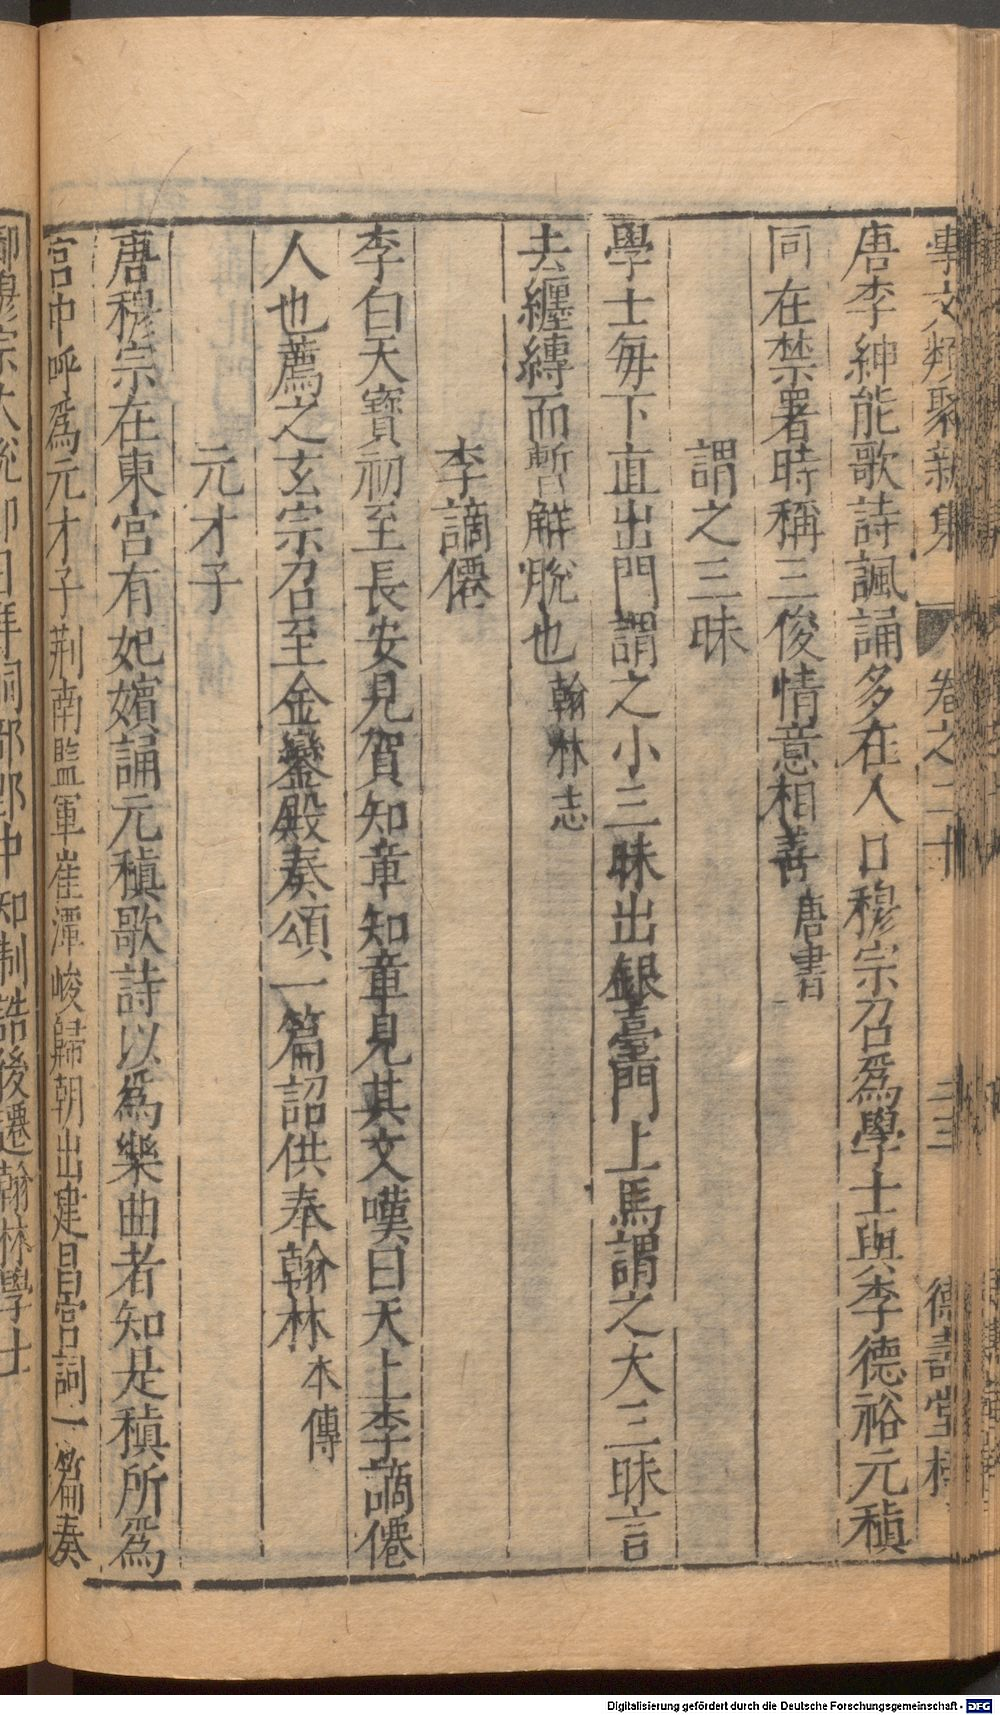 學文類聚新集 卷之二十 二三 德壽堂梓
唐李紳能歌詩諷誦多在人口穆宗召爲學士與李德裕元稹
同在禁署時稱三俊情意相善唐書
謂之三昧
學士每下直出門謂之小三昧出銀臺門上馬謂之大三昧言
去纏縛而暫解脫也翰林志
李謫僊
李白天寶初至長安見賀知章知章見其文嘆曰天上李謫僊
人也薦之玄宗召至金鑾殿奏頌一篇詔供奉翰林本傳
元才子
唐穆宗在東宮有妃嬪誦元稹歌詩以爲樂曲者知是稹所爲
宮中呼爲元才子荆南監軍崔潭峻歸朝出建昌宮詞一篇奏
御穆宗大悅即日拜祠部郎中知制誥後遷翰林學士
Digitalisierung gefördert durch die Deutsche Forschungsgemeinschaft - DFG